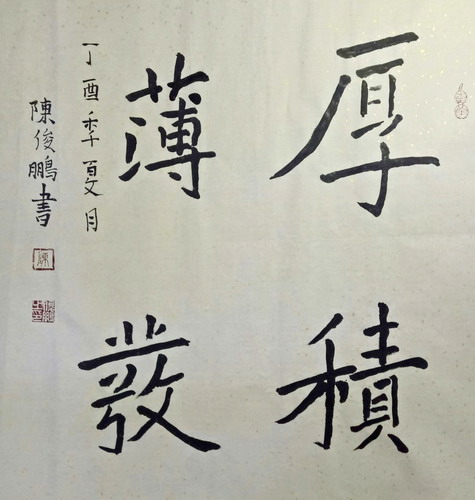 厚積
薄發
丁酉季夏月
陳俊鵬書